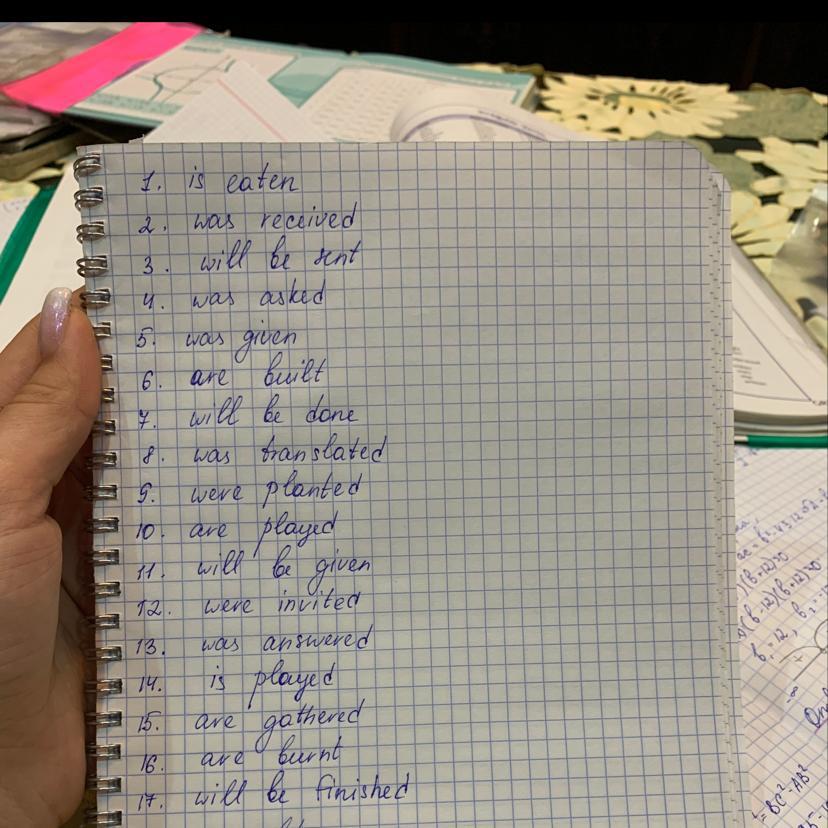 1. is eaten
2. was received
3. will be sent
4. was asked
5. was given
6. are built
7. will be done
8. was translated
9. were planted
10. are played
11. will be given
12. were invited
13. was answered
14. is played
15. are gathered
16. are burnt
17. will be finished